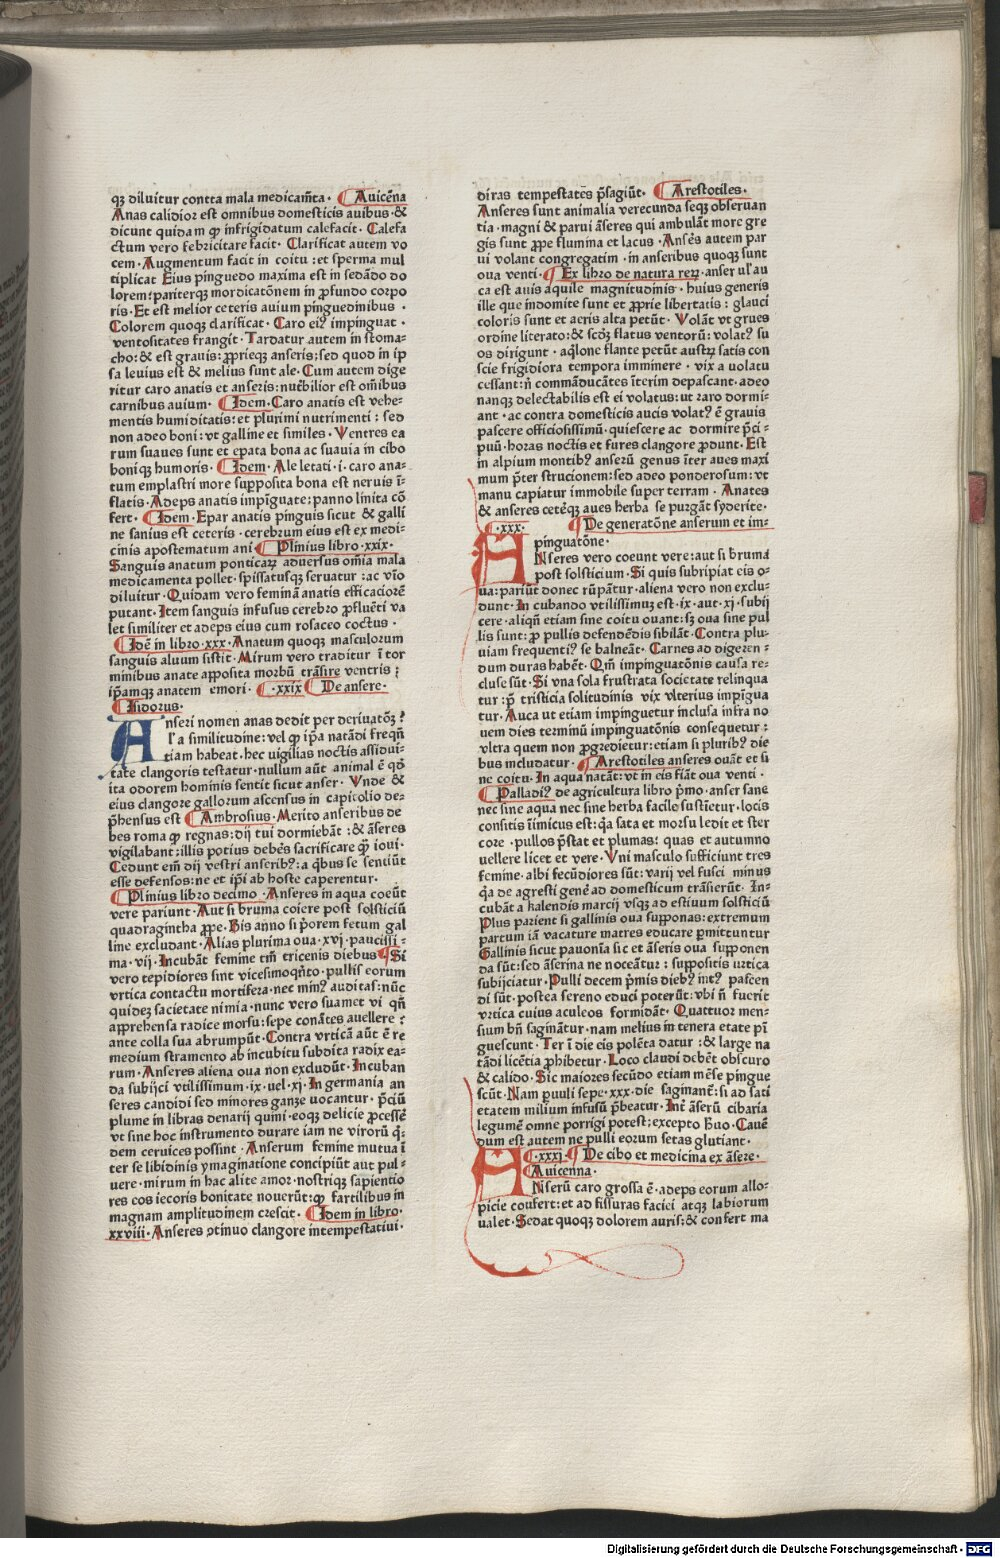 qꝫ diluitur contra mala medicam̄ta · Auicēna
Anas calidior est omnibus domesticis auibus · &
dicunt quidam ꝙ infrigidatum calefacit · Calefa
ctum vero febricitare facit · Clarificat autem vo
cem · Augmentum facit in coitu : et sperma mul
tiplicat Eius pinguedo maxima est in sedādo do
lorem : pariterqꝫ mordicatōnem in ꝓfundo corpo
ris · Et est melior ceteris auium pinguedinibus ·
Colorem quoqꝫ clarificat · Caro eiꝰ impinguat ·
ventositates frangit · Tardatur autem in stoma-
cho : & est grauis : ꝓprieqꝫ anseris ; sed quod in ip̄
sa leuius est & melius sunt ale · Cum autem dige
ritur caro anatis et anseris : nutībilior est om̄ibus
carnibus auium · Idem · Caro anatis est vehe-
mentis humiditatis : et plurimi nutrimenti : sed
non adeo boni : vt galline et similes · Ventres ea
rum suaues sunt et epata bona ac suauia in cibo
boniqꝫ humoris · Idem · Ale letati · i · caro ana-
tum emplastri more supposita bona est neruis ī-
flatis · Adeps anatis impīguate : panno linita cō
fert · Idem · Epar anatis pinguis sicut & galli
ne sanius est ceteris · cerebrum eius est ex medi-
cinis apostematum ani Plinius libro · xxix ·
Sanguis anatum ponticaꝝ aduersus om̄ia mala
medicamenta pollet · spissatusqꝫ seruatur : ac vīo
diluitur · Quidam vero feminā anatis efficaciorē
putant · Item sanguis infusus cerebro ꝓfluēti va
let similiter et adeps eius cum rosaceo coctus ·
Idē in libro · xxx · Anatum quoqꝫ masculorum
sanguis aluum sistit · Mirum vero traditur ī tor
minibus anate apposita morbū trāsire ventris ;
ip̄amqꝫ anatem emori · · xxix De ansere ·
Isidorus ·
Anseri nomen anas dedit per deriuatōꝫ ?
l'a similitudine : vel ꝙ ip̄a natādi freqn̄
tiam habeat · hec uigilias noctis assidui-
tate clangoris testatur · nullum aūt animal ē qđ
ita odorem hominis sentit sicut anser · Vnde &
eius clangore gallorum ascensus in capitolio de-
p̄hensus est Ambrosius · Merito anseribus de
bes roma ꝙ regnas : dij tui dormiebāt : & āseres
vigilabant : illis potius debēs sacrificare ꝙ̄ ioui ·
Cedunt em̄ dij vestri anseribꝰ : a qbus se sentiūt
esse defensos : ne et ip̄i ab hoste caperentur ·
Plinius libro decimo · Anseres in aqua coeūt
vere pariunt · Aut si bruma coiere post solsticiū
quadragintha ꝓpe · Bis anno si p̄orem fetum gal
line excludant · Alias plurima oua · xvj · paucissi-
ma · vij · Incubāt femine tm̄ tricenis diebus Si
vero tepidiores sint vicesimoqn̄to · pullis eorum
vrtica contactu mortifera · nec minꝰ auditas : nūc
quidez sacietate nimia · nunc vero suamet vi qn̄
apprehensa radice morsu : sepe conātes auellere ?
ante colla sua abrumpūt · Contra vrticā aūt ē re
medium stramento ab incubitu subdita radix ea-
rum · Anseres aliena oua non excludūt · Incuban
da subijci vtilissimum · ix · uel · xj · In germania an
seres candidi sed minores ganze uocantur · p̄ciū
plume in libras denarij quini · eoqꝫ delicie ꝓcessē
vt sine hoc instrumento durare iam ne virorū q̄-
dem ceruices possint · Anserum femine mutua ī
ter se libidinis ymaginatione concipiūt aut pul-
uere · mirum in hac alite amor · nostriqꝫ sapientio
res cos iecoris bonitate nouerūt : ꝙ fartilibus in
magnam amplitudinem crescit · Idem in libro ·
xxviii · Anseres ꝯtinuo clangore intempestatiui ·
diras tempestates p̄sagiūt · Arestotiles ·
Anseres sunt animalia verecunda seqꝫ obseruan
tia · magni & parui āseres qui ambulāt more gre
gis sunt ꝓpe flumina et lacus · Ansēs autem par
ui volant congregatim · in anseribus quoqꝫ sunt
oua venti · Ex libro de natura reꝝ · anser ul' au
ca est auis aquile magnitudinis · huius generis
ille que indomite sunt et ꝓprie libertatis : glauci
coloris sunt et aeris alta petūt · Volāt vt grues
ordine literato : & scđꝫ flatus ventorū : volatꝰ su
os dirigunt · aq̄lone flante petūt austꝝ satis con
scie frigidiora tempora imminere · vix a uolatu
cessant : n̄ commāducātes īterim depascant · adeo
nanqꝫ delectabilis est ei volatus : ut raro dormi-
ant · ac contra domesticis aucis volatꝰ ē grauis
pascere officiosissimū · quiescere ac dormire p̄ci -
puū · horas noctis et fures clangore ꝓdunt · Est
in alpium montibꝰ anserū genus īter aues maxi
mum p̄ter strucionem : sed adeo ponderosum : vt
manu capiatur immobile super terram · Anates
& anseres ceteqꝫ aues herba se purgāt syderite ·
· xxx · De generatōne anserum et im-
pinguatōne ·
ANseres vero coeunt vere : aut si bruma
post solsticium · Si quis subripiat eis o-
ua : pariūt donec rūpātur · aliena vero non exclu-
dunt · In cubando vtilissimuꝫ est · ix · aut · xj · subij
cere · aliqn̄ etiam sine coitu ouant : sꝫ oua sine pul
lis sunt : ꝓ pullis defendēdis sibilāt · Contra plu-
uiam frequentiꝰ se balneāt · Carnes ad digeren -
dum duras habēt · Qm̄ impinguatōnis causa re-
cluse sūt · Si vna sola frustrata societate relinqua
tur : p̄ tristicia solitudinis vix vlterius impīgua
tur · Auca ut etiam impinguetur inclusa infra no
uem dies terminū impinguatōnis consequetur :
vltra quem non ꝓgredietur : etiam si pluribꝰ die
bus includatur · Arestotiles anseres ouāt et si
ne coitu · In aqua natāt : vt in eis fiāt oua venti ·
Palladiꝰ de agricultura libro p̄mo · anser sane
nec sine aqua nec sine herba facile sustīetur · locis
consitis īimicus est : q̄a sata et morsu ledit et ster
core · pullos p̄stat et plumas : quas et autumno
uellere licet et vere · Vni masculo sufficiunt tres
femine · albi fecūdiores sūt : varij vel fusci minus
q̄a de agresti genē ad domesticum trāsierūt · In-
cubāt a kalendis marcij vsqꝫ ad estiuum solsticiū
Plus parient si gallinis oua supponas : extremum
partum iā vacature matres educare ꝑmittuntur
Gallinis sicut pauonīa sic et āseris oua supponen
da sūt : sed āserina ne noceātur : suppositis urtica
subijciatur · Pulli decem p̄mis diebꝰ intꝰ pascen
di sūt · postea sereno educi poterūt : vbi n̄ fuerit
vrtica cuius aculeos formidāt · Quattuor men-
sium bn̄ saginātur · nam melius in tenera etate pī
guescunt · Ter ī die eis polēta datur : & large na
tādi licētia ꝓhibetur · Loco claudi debēt obscuro
& calido · Sic maiores secūdo etiam mēse pingue
scūt · Nam puuli sepe · xxx · die saginanť : si ad sati
etatem milium infusū p̄beatur · Inť āserū cibaria
legumē omne porrigi potest : excepto Buo · Cauē
dum est autem ne pulli eorum setas glutiant ·
· xxxj · De cibo et medicina ex āsere ·
Auicenna ·
ANserū caro grossa ē · adeps eorum allo-
picie confert : et ad fissuras faciei atqꝫ labiorum
ualet · Sedat quoqꝫ dolorem auris : & confert ma
Digitalisierung gefördert durch die Deutsche Forschungsgemeinschaft · DFG